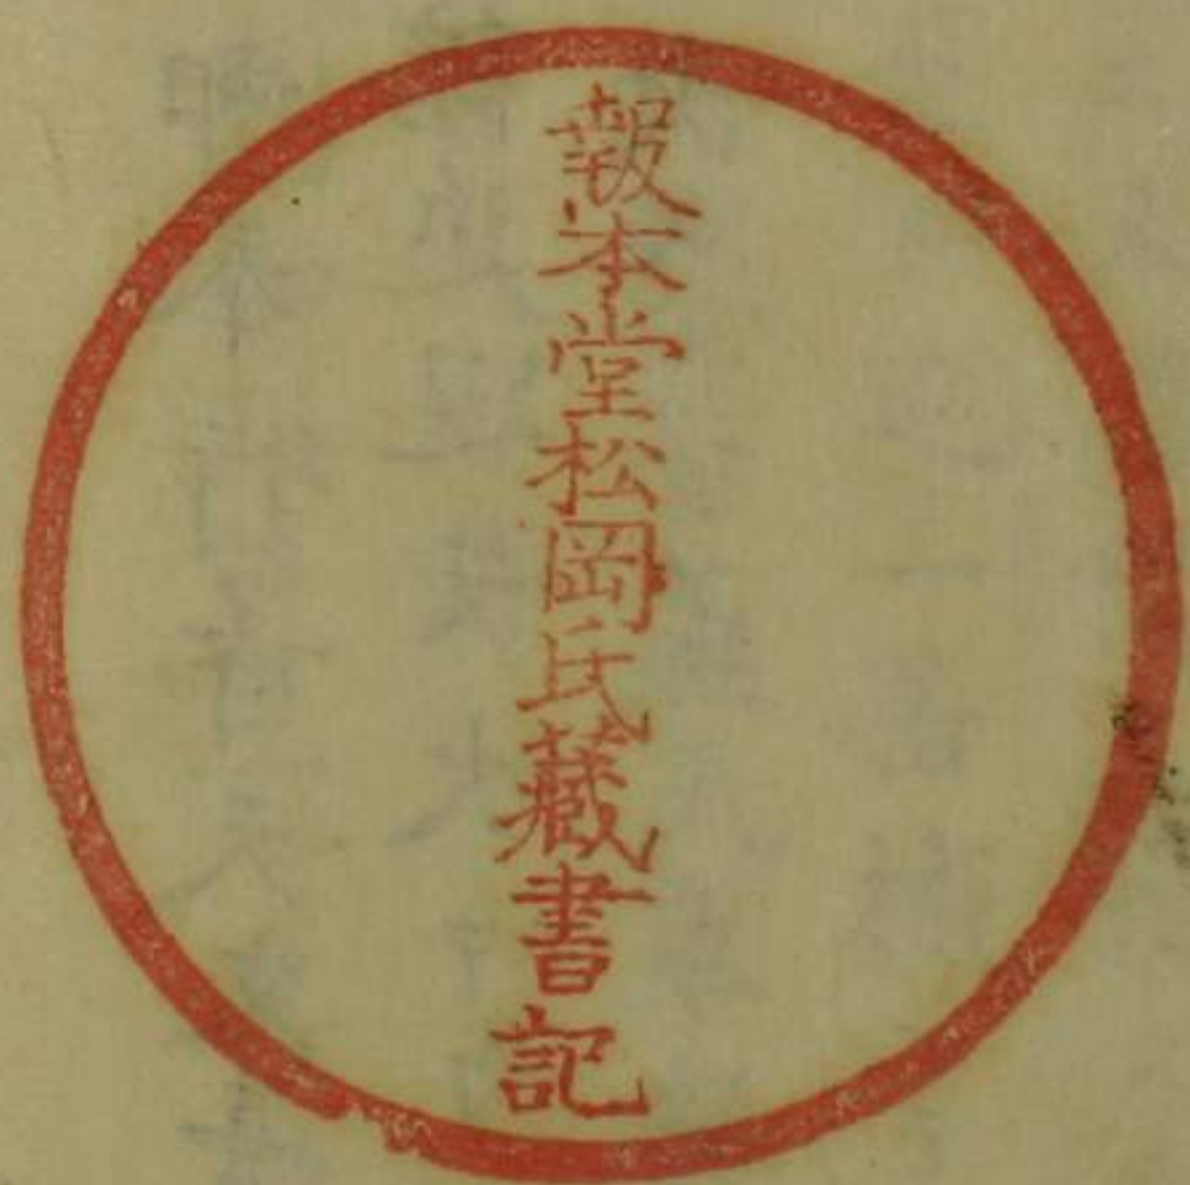 報本堂松岡氏藏書記